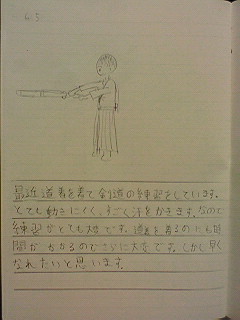 4.5
最近道着を着て剣道の練習をしています。
とても動きにくく、すごく汗をかきます。なので
練習がとても大変です。道着を着るのにも時
間がかかるのでさらに大変です。しかし早く
なれたいと思います。